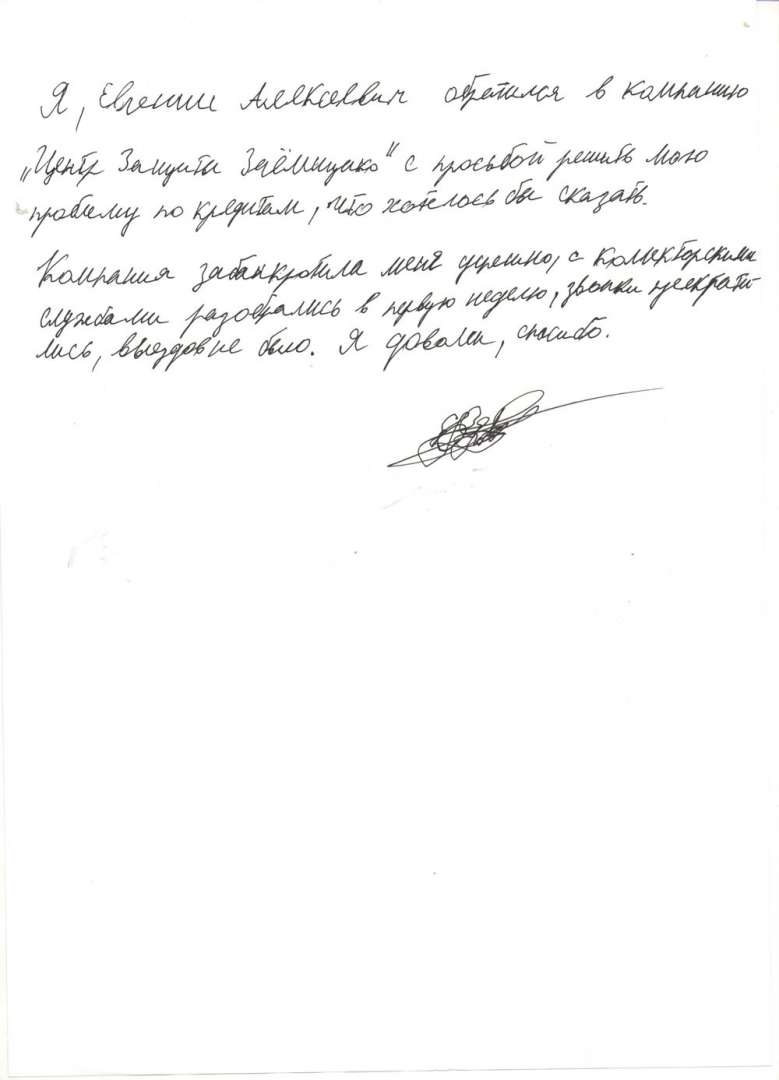 Я, Евгений Алексеевич обратился в компанию
„Центр Защиты Заёмщика“ с просьбой решить мою
проблему по кредитам, что хотелось бы сказать.
Компания забанкротила меня успешно, с коллекторскими
службами разобрались в первую неделю, звонки прекрати-
лись, выездов не было. Я доволен, спасибо.